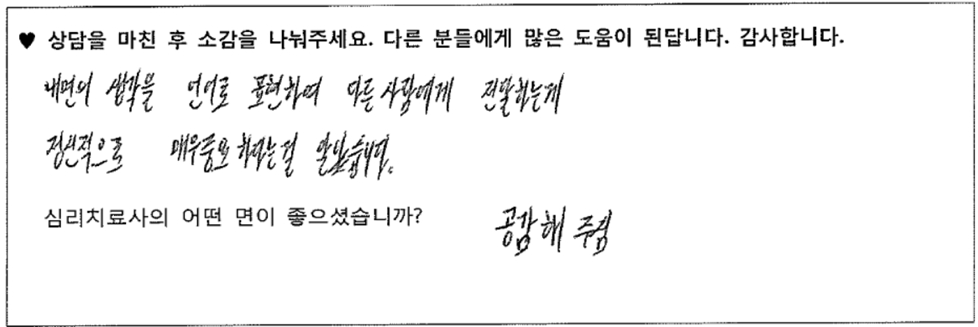 ♥ 상담을 마친 후 소감을 나눠주세요. 다른 분들에게 많은 도움이 된답니다. 감사합니다.
내면의 생각을 언어로 표현하여 다른 사람에게 전달하는게
정신적으로 매우중요하다는걸 알았습니다.
심리치료사의 어떤 면이 좋으셨습니까? 공감해 주심